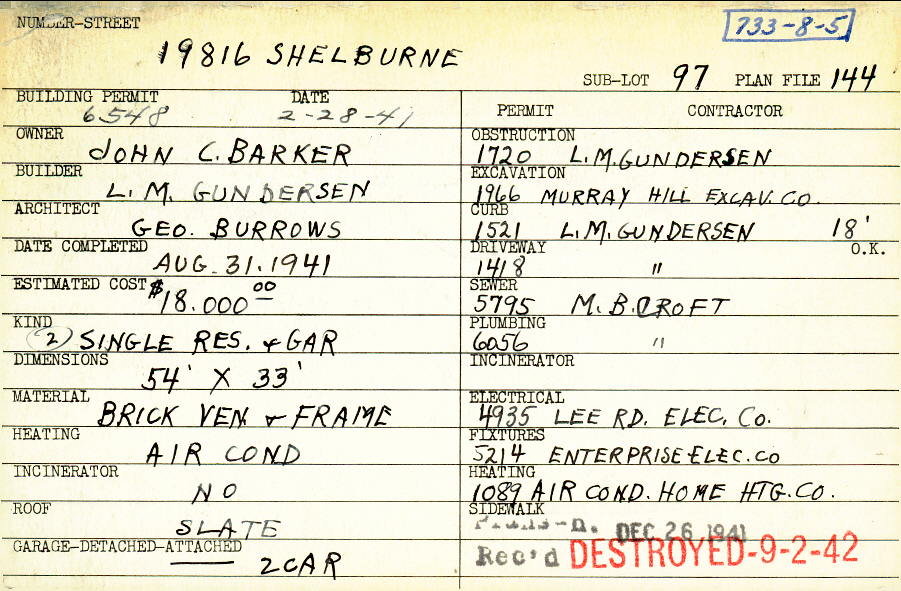 NUMBER-STREET
733-8-5
19816 SHELBURNE
SUB-LOT 97 PLAN FILE 144
BUILDING PERMIT DATE
6548 2-28-41
OWNER
JOHN C. BARKER
BUILDER
L. M. GUNDERSEN
ARCHITECT
GEO. BURROWS
DATE COMPLETED
AUG. 31. 1941
ESTIMATED COST $18.000 00
KIND
(2) SINGLE RES. & GAR
DIMENSIONS
54' X 33'
MATERIAL
BRICK VEN. & FRAME
HEATING
AIR COND
INCINERATOR
NO
ROOF
SLATE
GARAGE-DETACHED-ATTACHED
2 CAR
PERMIT CONTRACTOR
OBSTRUCTION
1720 L. M. GUNDERSEN
EXCAVATION
1966 MURRAY HILL EXCAV. CO.
CURB
1521 L. M. GUNDERSEN 18'
DRIVEWAY O.K.
1418 "
SEWER
5795 M. B. CROFT
PLUMBING
6056 "
INCINERATOR
ELECTRICAL
4935 LEE RD. ELEC. CO.
FIXTURES
5214 ENTERPRISE ELEC. CO
HEATING
1089 AIR COND. HOME HTG. CO.
SIDEWALK
DEC 26 1941
Rec'd DESTROYED-9-2-42